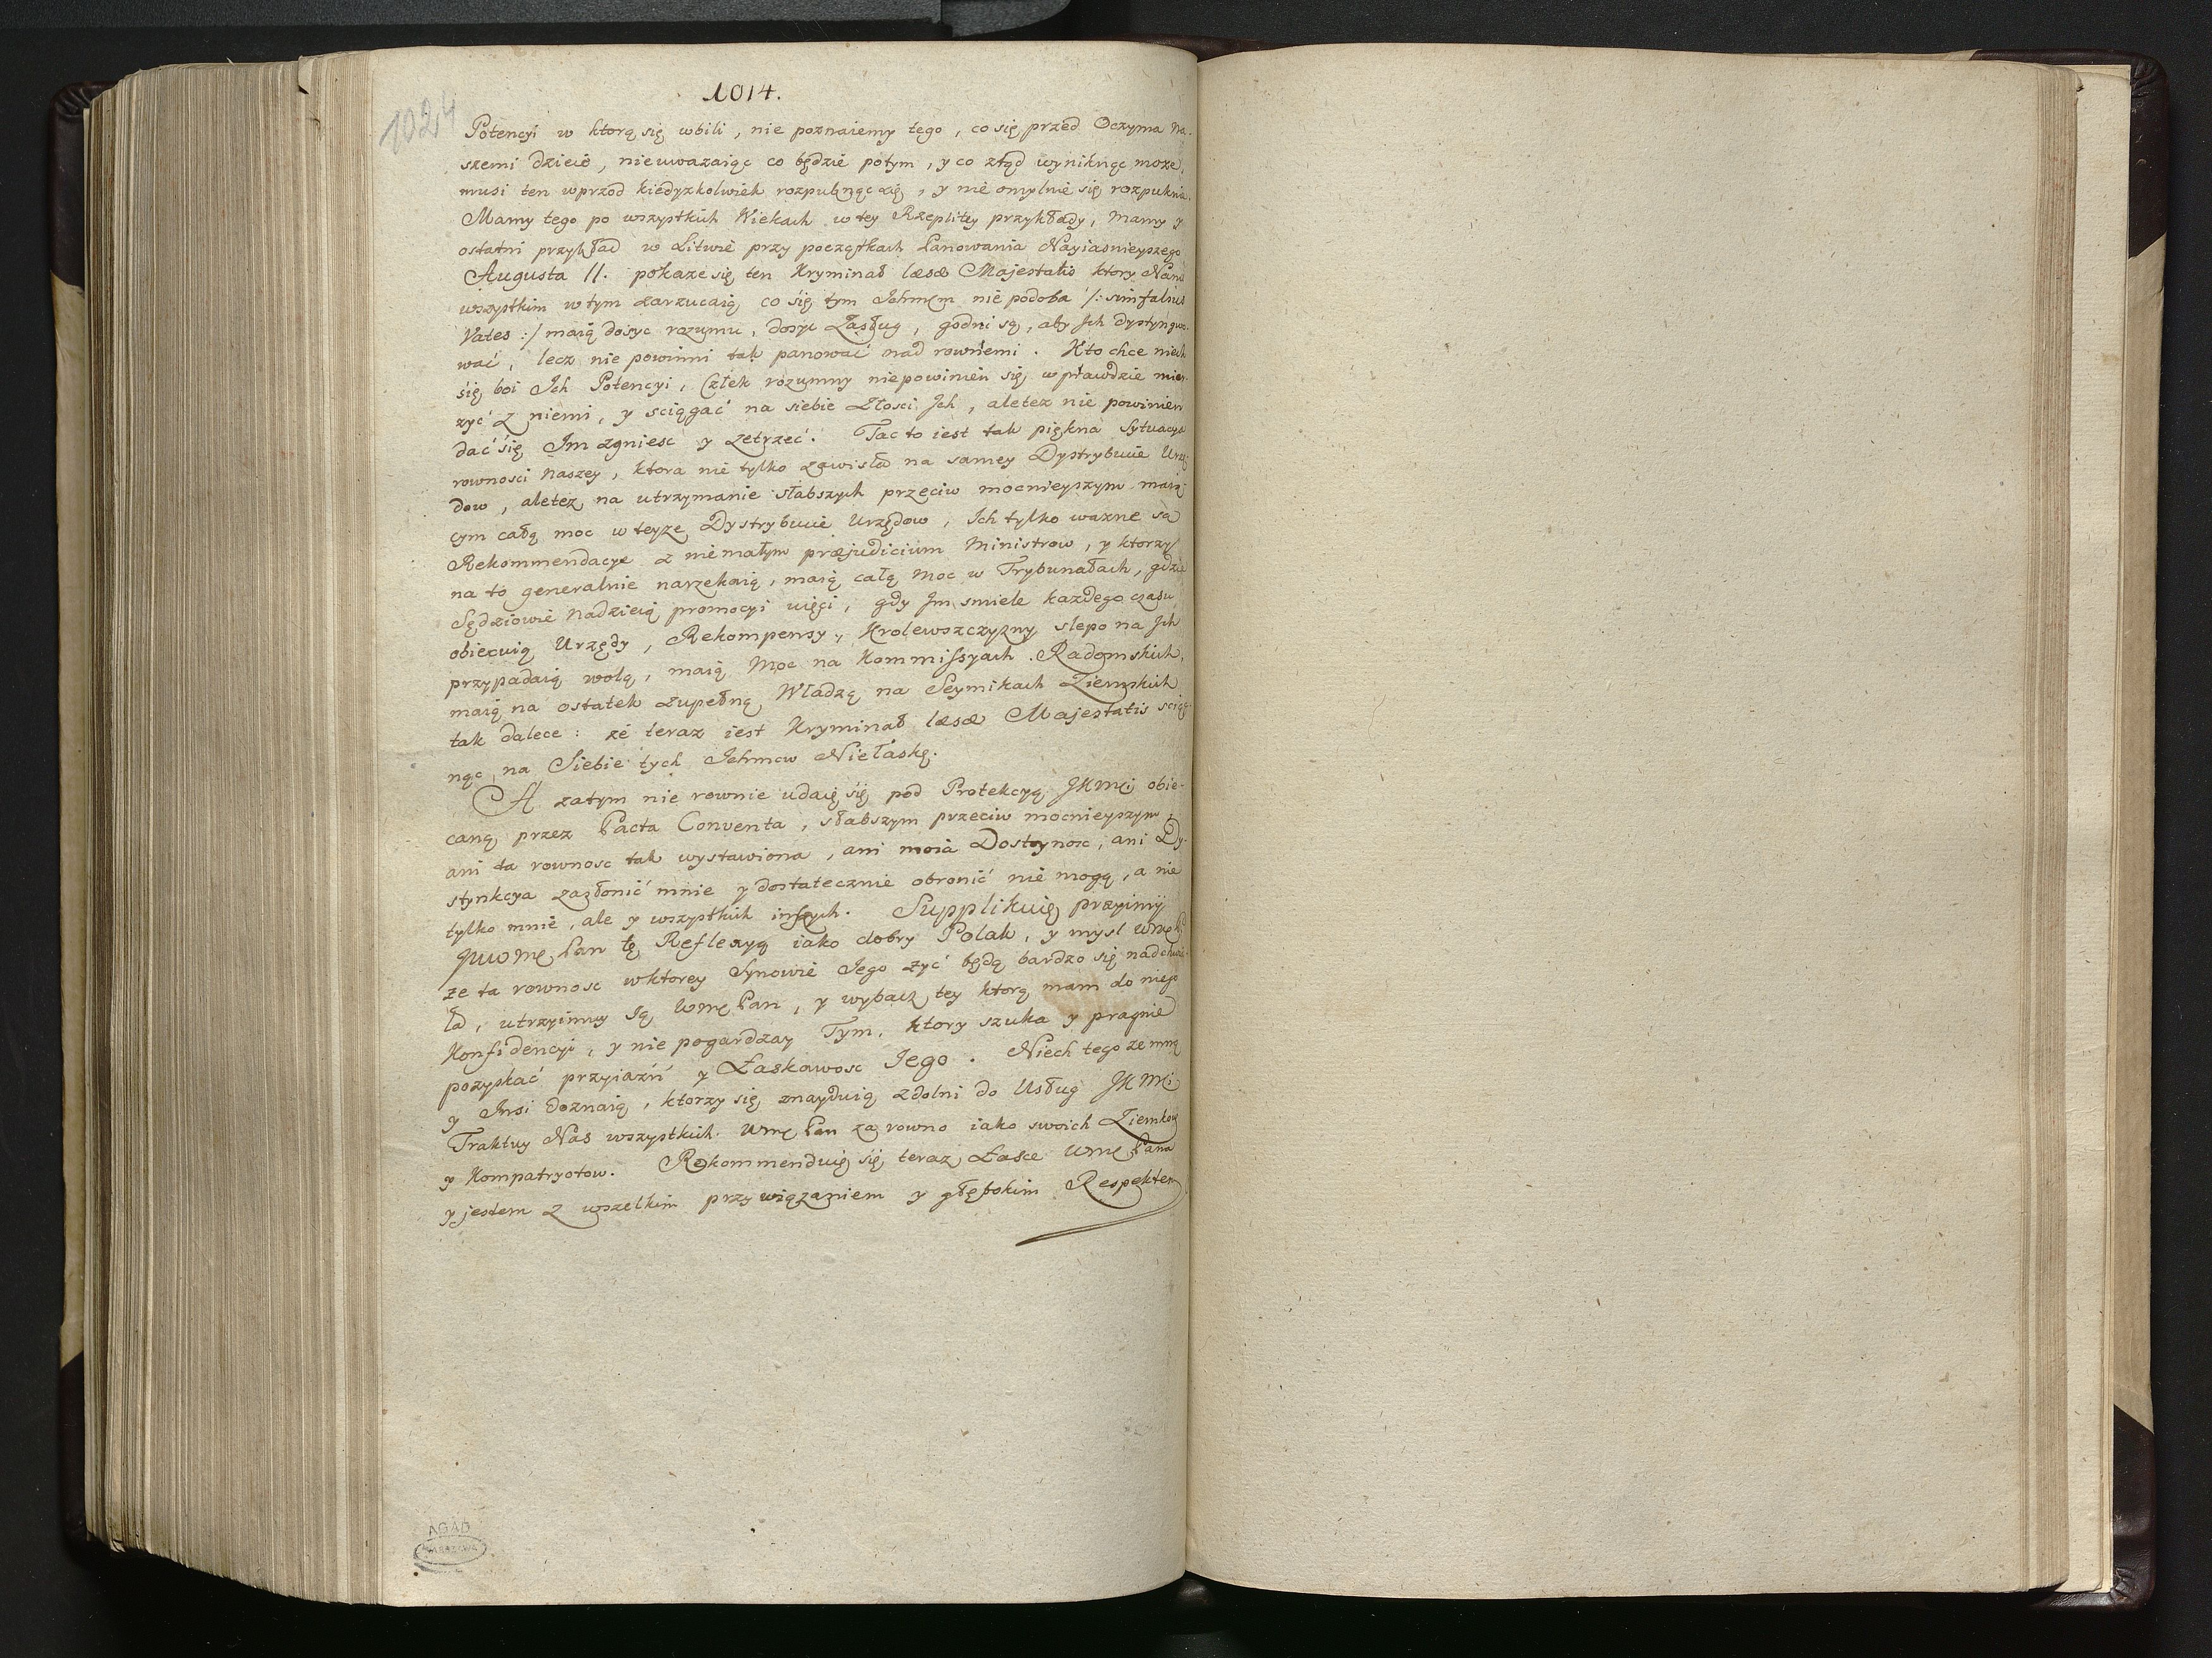 1014.
1024
Potencyi w ktorą się wbili, nie poznaiemy tego, co się przed Oczyma na-
szemi dzieie, nieuwazaiąc co będzie potym, y co ztąd wyniknąc moze,
musi ten wprzod kiedyzkolwiek rozpuknąc się, y nie omylnie się rozpuknie.
Mamy tego po wszystkich Wiekach w tey Rzeplitey przykłady, mamy y
ostatni przykład w Litwie przy początkach Panowania Nayiasnieyszego
Augusta II. pokaze się ten Kryminał læsæ Majestatis ktory Nam
wszystkim w tym zarzucaią, co się tym Ichmcm nie podoba /: sim falsus
Vates :/ maią dosyc rozumu, dosyc Zasług, godni są, aby Ich dystyngwo-
wać, lecz nie powinni tak panować nad rownemi. Kto chce niech
się boi Ich Potencyi, Człek rozumny niepowinien się wprawdzie mie-
rzyć z niemi, y sciągać na siebie Złosci Ich, aletez nie powinien
dać się Im zgniesc y zetrzeć. Tac to iest tak piękna Sytuacya
rownosci naszey, ktora nie tylko zawisła na samey Dystrybucie Urzę-
dow, aletez na utrzymanie słabszych przeciw mocnieyszym maią-
cym całą moc w teyze Dystrybucie Urzędow, Ich tylko wazne są
Rekommendacye z niemałym præjudicium Ministrow, y ktorzy
na to generalnie narzekaią, maią całą moc w Trybunałach, gdzie
Sędziowie nadzieią promocyi uięci, gdy Im smiele kazdego czasu
obiecuią Urzędy, Rekompensy, Krolewszczyzny slepo na Ich
przypadaią wolą, maią Moc na Kommissyach Radomskich,
maią na ostatek zupełną Władzą na Seymikach Ziemskich
tak dalece: ze teraz iest Kryminał læsæ Majestatis scią-
gnąc na Siebie tych Ichmcw Niełaskę.
A zatym nie rownie udaię się pod Protekcyą JKMci obie-
caną przez Pacta Conventa, słabszym przeciw mocnieyszym,
ani ta rownosc tak wystawiona, ani moia Dostoynosc, ani Dy-
stynkcya zasłonić mnie y dostatecznie obronić nie mogą, a nie
tylko mnie, ale y wszystkich inszych. Supplikuię przyimiy
Pan tę Reflexyą iako dobry Polak, y mysl
ze ta rownosc w ktorey Synowie Jego zyć będą bardzo się nadchwia-
ła, utrzyimuy Są Wmć Pan, y wybacz tey ktorą mam do niego
Konfidencyi, y nie pogardzay Tym, ktory szuka y pragnie
pozyskać przyiaźń y Łaskawosc Jego. Niech tego ze mną
y Insi doznaią, ktorzy się znayduią zdolni do Usług JKMci
Traktuy Nas wszystkich Wmć Pan za rowno iako swoich Ziemkow
y Kompatryotow. Rekommenduię się teraz Łasce Wmć Pana
y jestem z wszelkim przywiązaniem y głębokim Respektem
AGAD
WARSZAWA